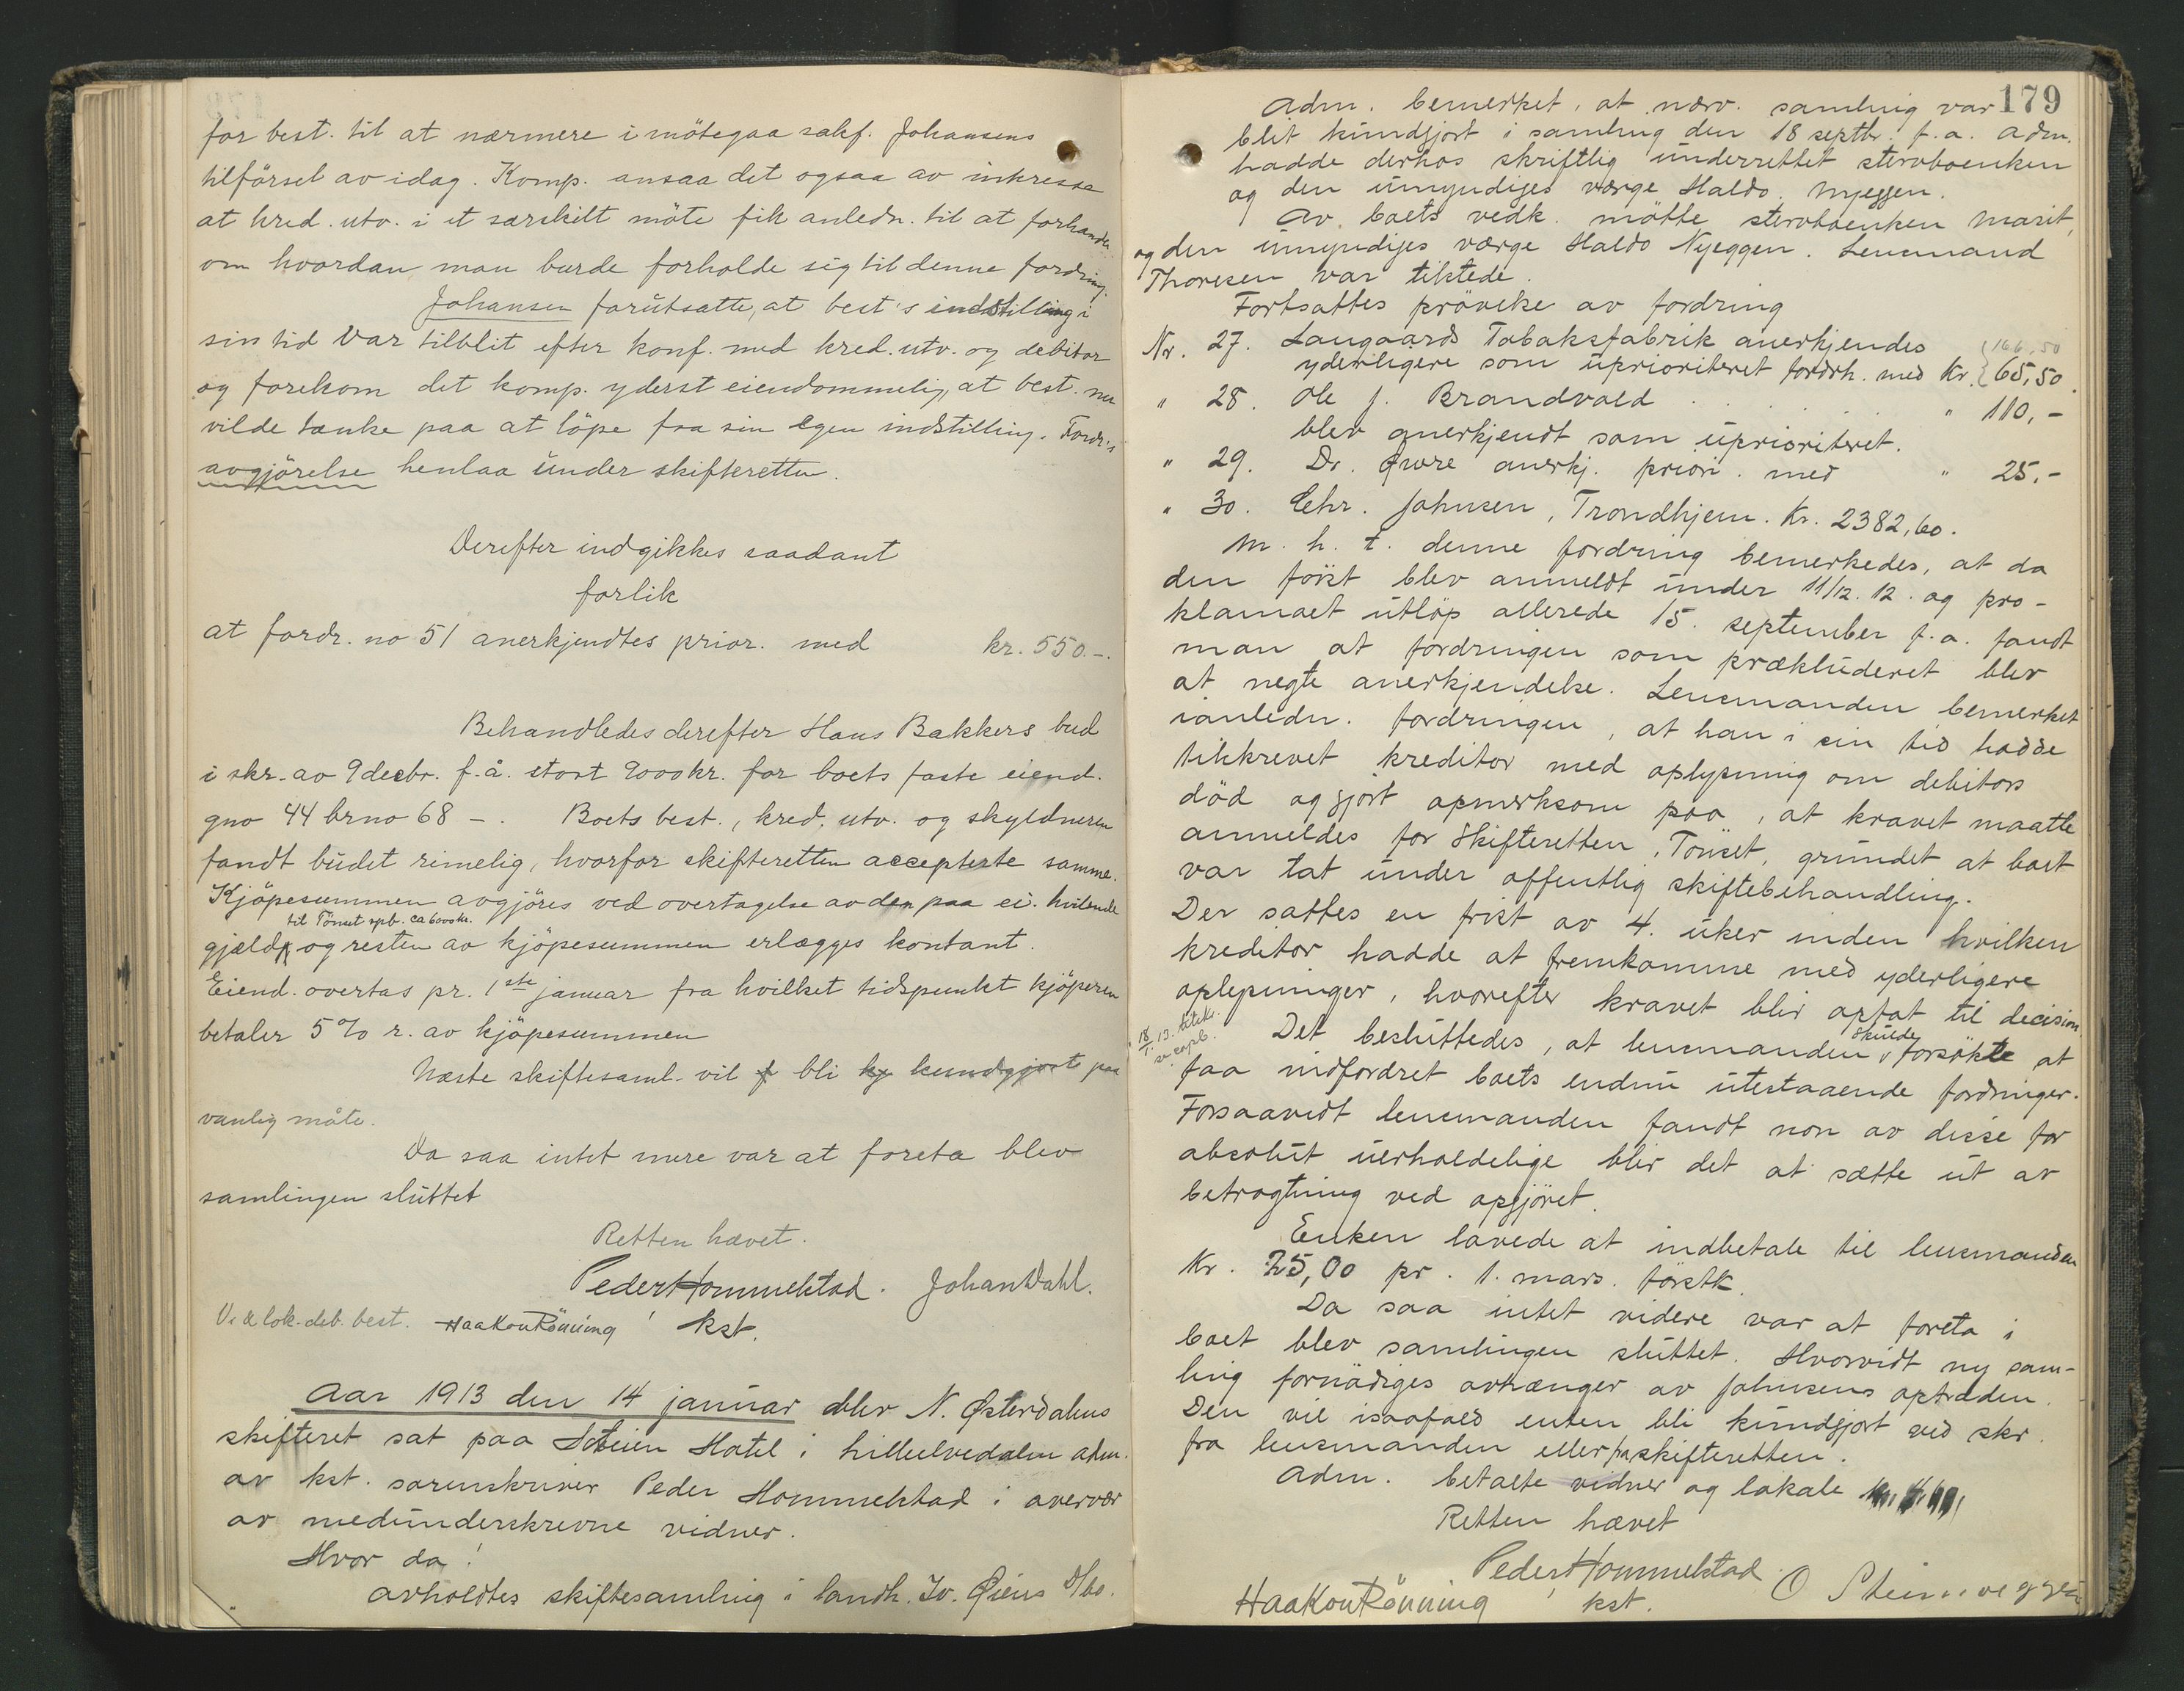 for best. til at nærmere imötegaa sakf. Johansens
tilförsel av idag. Komp. ansaa det ogsaa av interesse
at kred. utv. i et særskilt möte fik anledn. til at forhandle
om hvordan man burde forholde sig til denne fordring.
Johansen forutsatte, at best's indstilling i
sin tid var tilblit efter konf. med kred. utv. og debitor
og forekom det komp. yderst eiendommelig, at best. nu
vilde tænke paa at löpe fra sin egen indstilling. Fordr.'s
avgjörelse henlaa under skifteretten.
Derefter indgikkes saadant
forlik
at fordr. no 51 anerkjendtes prior. med kr. 550.-.
Behandledes derefter Hans Bakkers bud
i skr. av 9 decbr. f.å. stort 9000 kr. for boets faste eiend.
gno 44 brno 68 -. Boets best., kred. utv. og skyldneren
fandt budet rimelig, hvorfor skifteretten accepterte samme.
Kjöpesummen avgjöres ved overtagelse av den paa ei. hvilende
til Tönset spb. ca 6000 kr.
gjæld og resten av kjöpesummen erlægges kontant.
Eiend. overtas pr. 1ste januar fra hvilket tidspunkt kjöperen
betaler 5% r. av kjöpesummen
Næste skiftesaml. vil f bli kj kundgjort paa
vanlig måte.
Da saa intet mere var at foreta blev
samlingen sluttet
Retten hævet.
Peder Hommelstad. Johan Dahl.
Ved lok. deb. best. Haakon Rönning kst.
Aar 1913 den 14 januar blev N. Østerdalens
skifteret sat paa Steien Hotel i Lilleelvedalen adm.
av kst. sorenskriver Peder Hommelstad i overvær
av medunderskrevne vidner.
Hvor da!
avholdtes skiftesamling i landh. Iv. Øiens d/bo.
179
Adm. bemerket, at nærv. samling var
blit kundgjort i samling den 18 septbr. f.a. Adm.
hadde derhos skriftlig underrettet stervboenken
og den umyndiges værge Haldo Nyeggen.
Av boets vedk. mötte stervboenken Marit,
og den umyndiges værge Haldo Nyeggen. Lensmand
Thoresen var tilstede.
Fortsattes prövelse av fordring
166,50
Nr. 27. Langaards Tobaksfabrik anerkjendes
yderligere som uprioriteret fordrh. med Kr. 65,50
" 28. Ole J. Brandvold . . . . " 110,-
blev anerkjendt som uprioriteret.
" 29. Dr. Øwre anerkj. priori. med " 25.-
" 30. Chr. Johnsen, Trondhjem. Kr. 2382,60.
M. h. t. denne fordring bemerkedes, at da
den först blev anmeldt under 11/12. 12. og pro-
klamaet utlöp allerede 15. september f.a. fandt
man at fordringen som prækluderet blev
at negte anerkjendelse. Lensmanden bemerket
ianledn. fordringen, at han i sin tid hadde
tilskrevet kreditor med oplysning om debitors
död og gjort opmerksom paa, at kravet maatte
anmeldes for Skifteretten, Tönset, grundet at boet
var tat under offentlig skiftebehandling.
Der sattes en frist av 4. uker inden hvilken
kreditor hadde at fremkomme med yderligere
oplysninger, hvorefter kravet blir optat til decision.
18/1. 13.
Det besluttedes, at lensmanden skulde forsökte at
faa indfordret boets endnu utestaaende fordringer.
Forsaavidt lensmanden fandt non av disse for
absolut uerholdelige blir det at sætte ut av
betragtning ved opgjöret.
Enken lovede at indbetale til lensmanden
Kr. 25,00 pr. 1. mars. förstk.
Da saa intet videre var at foreta i
boet blev samlingen sluttet. Hvorvidt ny sam-
ling fornödiges avhænger av Johnsens optræden.
Den vil isaafald enten bli kundgjort ved skr.
fra lensmanden eller fra skifteretten.
Adm. betalte vidner og lokale
Retten hævet
Peder Hommelstad
kst.
Haakon Rönning O Steinveggen